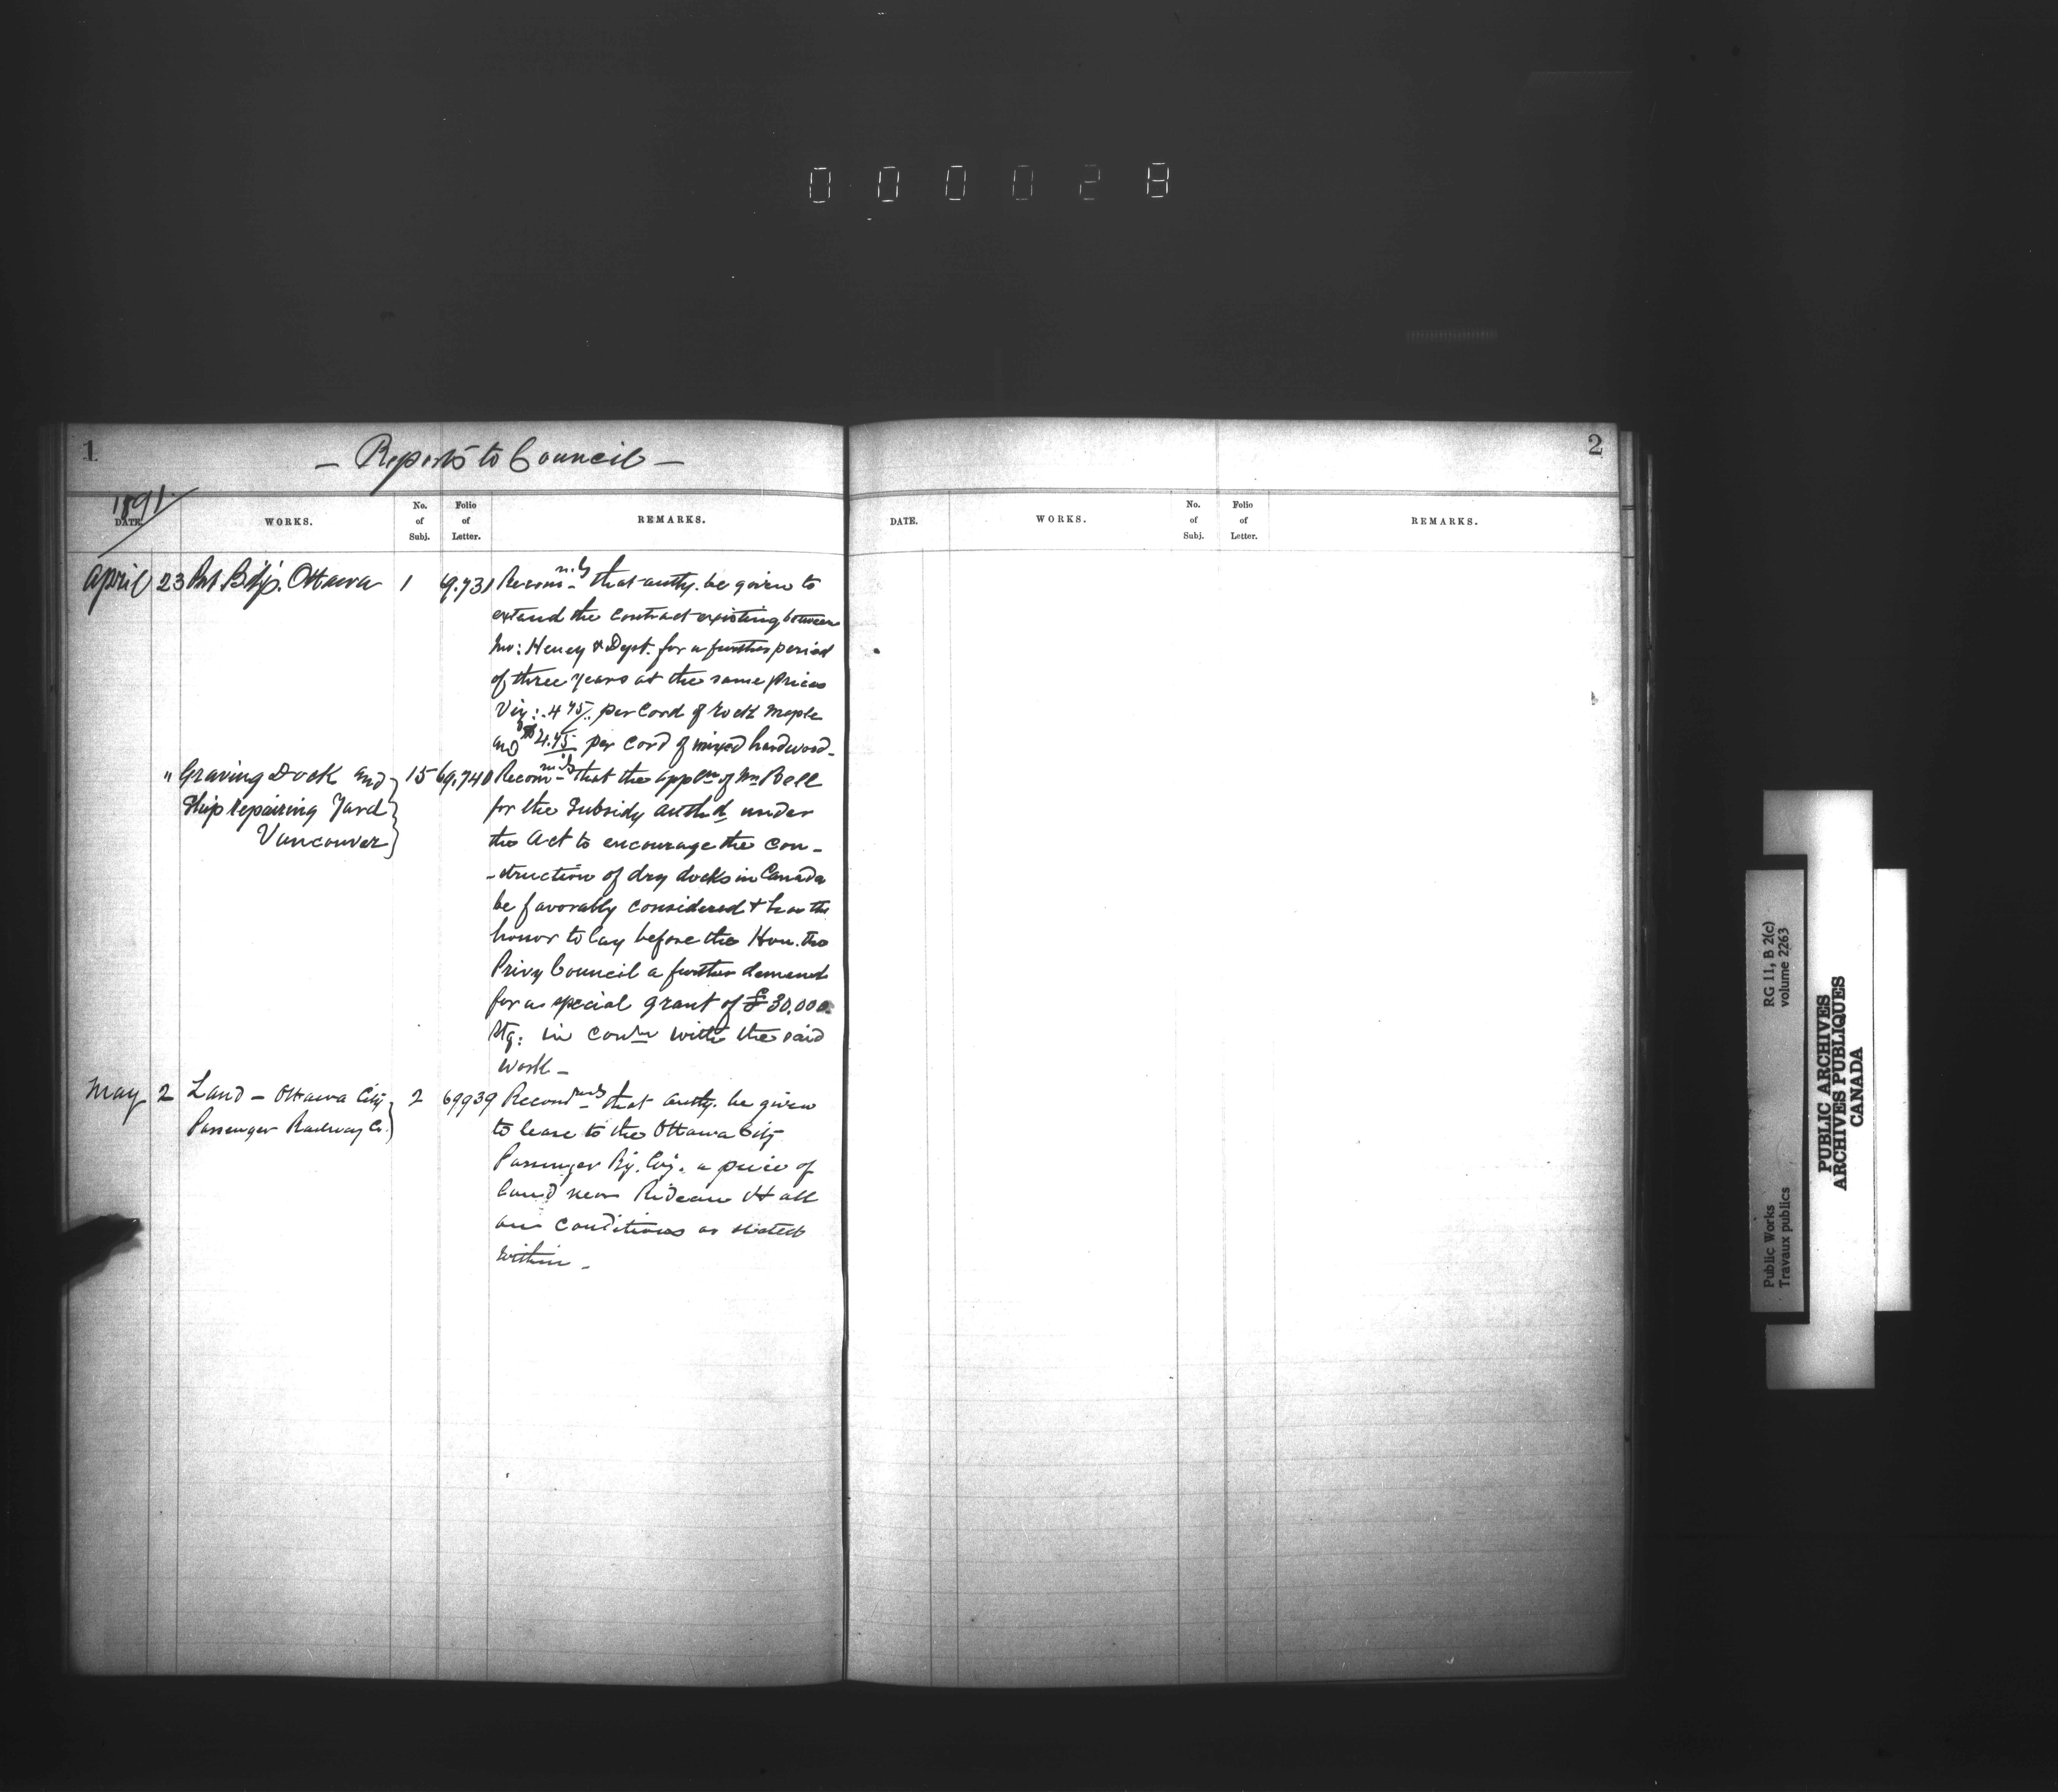 000028
1
— Reports to Council —
1891
DATE.
WORKS.
No. of Subj.
Folio of Letter.
REMARKS.
April 23 Pnt Bdgs. Ottawa 1 69.731 Recomnds that authy. be given to
extend the contract existing between
Mr: Heney & Dept. for a further period
of three years at the same prices
Viz: .4 75/.. per Cord of rock maple
and $4.45 per cord of mixed hardwood-
" Graving Dock and 15 69.740 Recomnds that the appln of Mr Bell
Ship repairing Yard for the Subsidy authd under
Vancouver the Act to encourage the con-
-struction of dry docks in Canada
be favorably considered & has the
honor to lay before the Hon. the
Privy Council a further demand
for a special grant of £30.000
Stg: in conn with the said
work —
May 2 Land — Ottawa City 2 69939 Recomnds that authy. be given
Passenger Railway Co. to lease to the Ottawa City
Passenger Ry. Coy. a piece of
land near Rideau Hall
on conditions as stated
within —
2
DATE.
WORKS.
No. of Subj.
Folio of Letter.
REMARKS.
Public Works RG 11, B 2(c)
Travaux publics volume 2263
PUBLIC ARCHIVES
ARCHIVES PUBLIQUES
CANADA